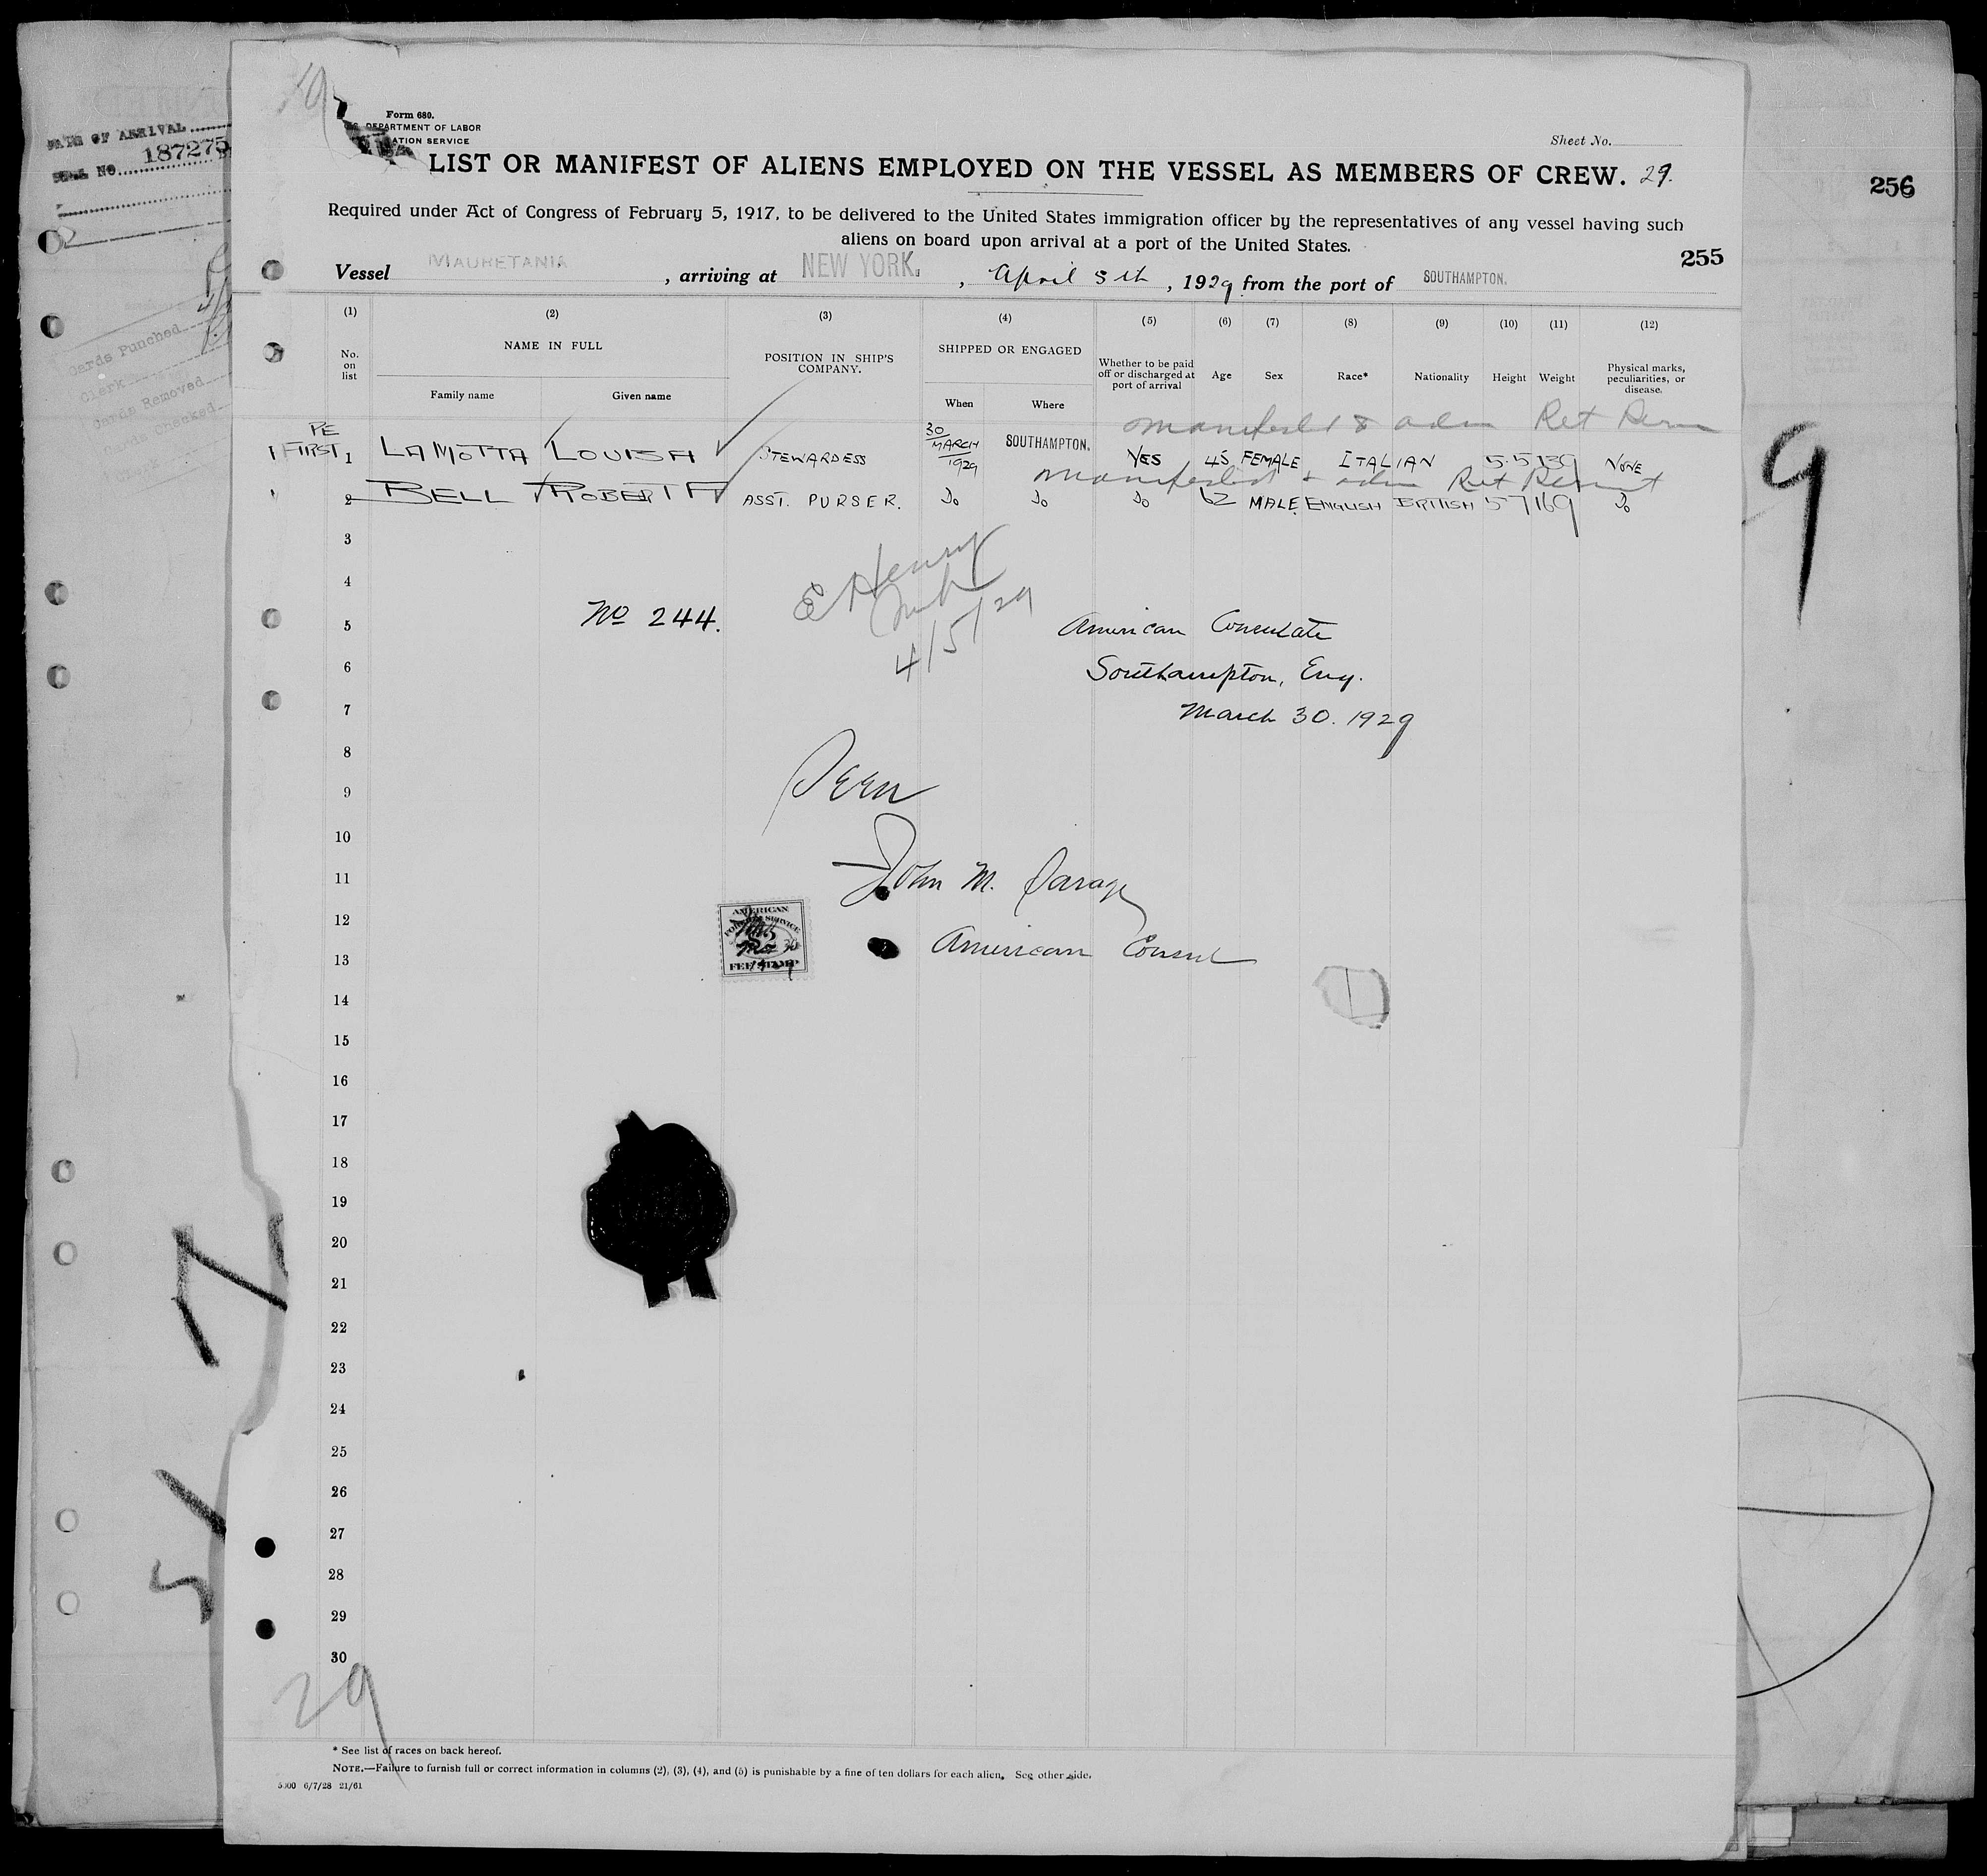 DATE OF ARRIVAL
187275
Cards Punched
Clerk
Cards Removed
Cards Checked
256
Form 680.
DEPARTMENT OF LABOR
ATION SERVICE
Sheet No.
LIST OR MANIFEST OF ALIENS EMPLOYED ON THE VESSEL AS MEMBERS OF CREW. 29.
Required under Act of Congress of February 5, 1917, to be delivered to the United States immigration officer by the representatives of any vessel having such
aliens on board upon arrival at a port of the United States.
255
Vessel MAURETANIA, arriving at NEW YORK, April 5th, 1929 from the port of SOUTHAMPTON.
(1) (2) (3) (4) (5) (6) (7) (8) (9) (10) (11) (12)
No. on list NAME IN FULL POSITION IN SHIP'S COMPANY. SHIPPED OR ENGAGED Whether to be paid off or discharged at port of arrival Age Sex Race* Nationality Height Weight Physical marks, peculiarities, or disease.
Family name Given name When Where
Manifested & adm Ret Perm
PE
FIRST 1 LAMOTTA LOUISA STEWARDESS 30 MARCH 1929 SOUTHAMPTON. YES 45 FEMALE ITALIAN 5.5 139 NONE
Manifested + adm Ret Permit
2 BELL ROBERT A ASST. PURSER. Do Do Do 62 MALE ENGLISH BRITISH 5 7 169 Do
3
E Henry
4
No 244.
4/5/29
5
American Consulate
6
Southampton, Eng.
7
March 30. 1929
8
Seen
9
10
11
John M. Savage
12
AMERICAN
FOREIGN SERVICE
FEE STAMP
American Consul
13
14
15
16
17
18
19
20
21
22
23
24
25
26
27
28
29
30
29
* See list of races on back hereof.
NOTE.—Failure to furnish full or correct information in columns (2), (3), (4), and (5) is punishable by a fine of ten dollars for each alien. See other side.
5000 6/7/28 21/61
9